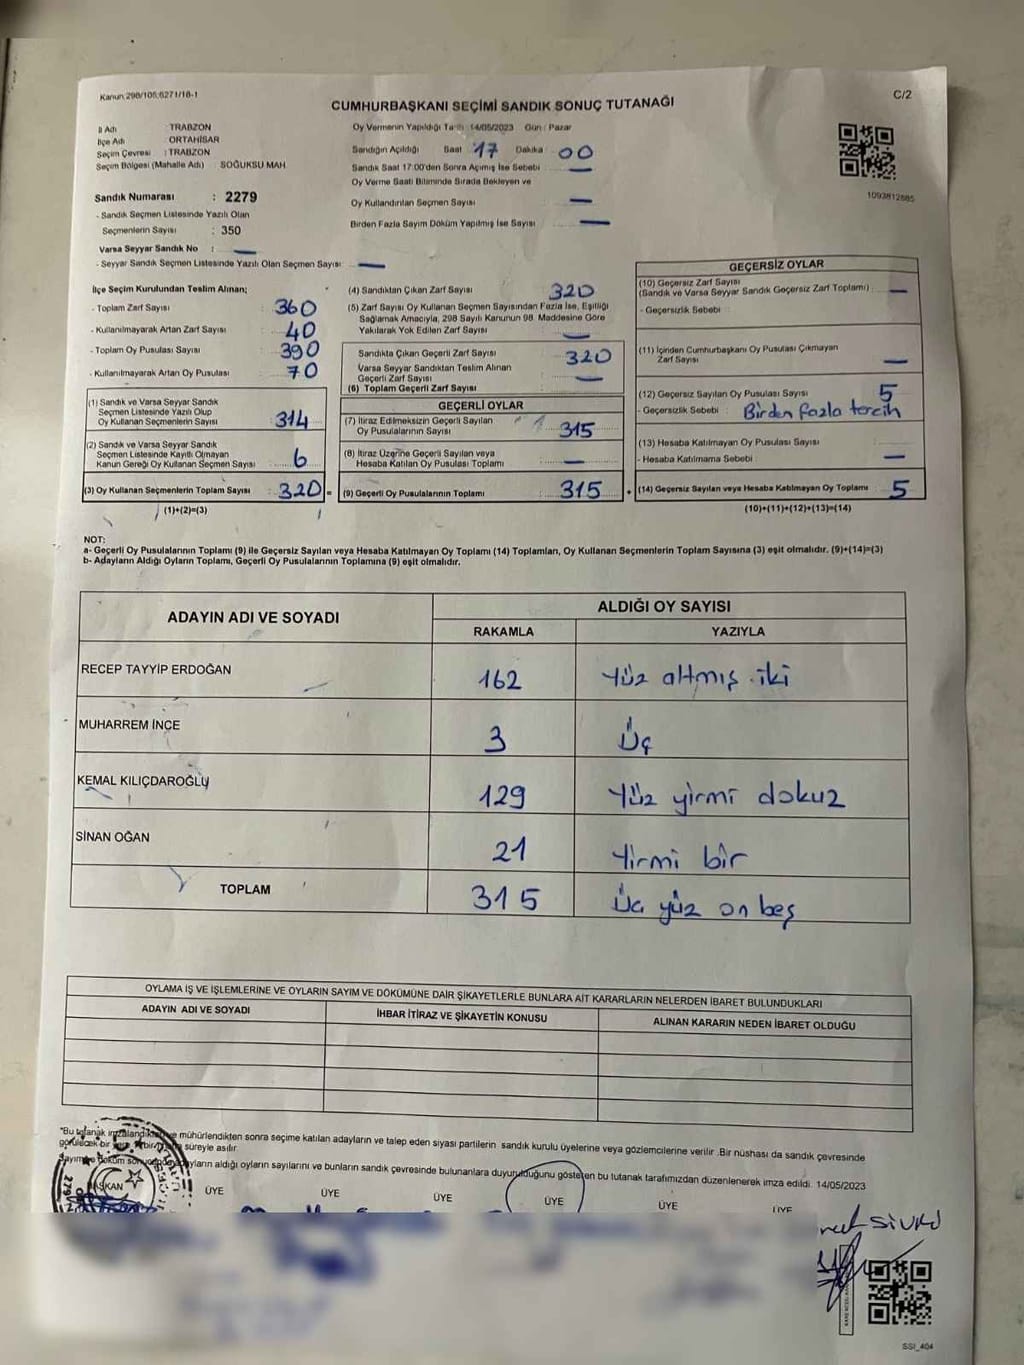 Kanun 298/105:6271/18-1
C/2
CUMHURBAŞKANI SEÇİMİ SANDIK SONUÇ TUTANAĞI
İl Adı TRABZON
İlçe Adı ORTAHİSAR
Seçim Çevresi : TRABZON
Seçim Bölgesi (Mahalle Adı) SOĞUKSU MAH.
Sandık Numarası : 2279
- Sandık Seçmen Listesinde Yazılı Olan
Seçmenlerin Sayısı : 350
Varsa Seyyar Sandık No : —
- Seyyar Sandık Seçmen Listesinde Yazılı Olan Seçmen Sayısı: —
Oy Vermenin Yapıldığı Tarih 14/05/2023 Gün : Pazar
Sandığın Açıldığı Saat 17 Dakika : 00
Sandık Saat 17:00'den Sonra Açılmış İse Sebebi —
Oy Verme Saati Bitiminde Sırada Bekleyen ve
Oy Kullandırılan Seçmen Sayısı —
Birden Fazla Sayım Döküm Yapılmış İse Sayısı —
1093812885
İlçe Seçim Kurulundan Teslim Alınan;
- Toplam Zarf Sayısı : 360
- Kullanılmayarak Artan Zarf Sayısı : 40
- Toplam Oy Pusulası Sayısı : 390
- Kullanılmayarak Artan Oy Pusulası : 70
(1) Sandık ve Varsa Seyyar Sandık
Seçmen Listesinde Yazılı Olup
Oy Kullanan Seçmen Sayısı : 314
(2) Sandık ve Varsa Seyyar Sandık
Seçmen Listesinde Kayıtlı Olmayan
Kanun Gereği Oy Kullanan Seçmen Sayısı : 6
(3) Oy Kullanan Seçmenlerin Toplam Sayısı : 320 =
(1)+(2)=(3)
(4) Sandıktan Çıkan Zarf Sayısı 320
(5) Zarf Sayısı Oy Kullanan Seçmen Sayısından Fazla İse, Eşitliği
Sağlamak Amacıyla, 298 Sayılı Kanunun 98. Maddesine Göre
Yakılarak Yok Edilen Zarf Sayısı —
Sandıkta Çıkan Geçerli Zarf Sayısı 320
Varsa Seyyar Sandıktan Teslim Alınan
Geçerli Zarf Sayısı —
(6) Toplam Geçerli Zarf Sayısı :
GEÇERLİ OYLAR
(7) İtiraz Edilmeksizin Geçerli Sayılan
Oy Pusulalarının Sayısı : 315
(8) İtiraz Üzerine Geçerli Sayılan veya
Hesaba Katılan Oy Pusulası Toplamı —
(9) Geçerli Oy Pusulalarının Toplamı : 315 +
GEÇERSİZ OYLAR
(10) Geçersiz Zarf Sayısı
(Sandık ve Varsa Seyyar Sandık Geçersiz Zarf Toplamı) : —
- Geçersizlik Sebebi :
(11) İçinden Cumhurbaşkanı Oy Pusulası Çıkmayan
Zarf Sayısı —
(12) Geçersiz Sayılan Oy Pusulası Sayısı 5
- Geçersizlik Sebebi : Birden fazla tercih
(13) Hesaba Katılmayan Oy Pusulası Sayısı :
- Hesaba Katılmama Sebebi : —
(14) Geçersiz Sayılan veya Hesaba Katılmayan Oy Toplamı : 5
(10)+(11)+(12)+(13)=(14)
NOT:
a- Geçerli Oy Pusulalarının Toplamı (9) ile Geçersiz Sayılan veya Hesaba Katılmayan Oy Toplamı (14) Toplamları, Oy Kullanan Seçmenlerin Toplam Sayısına (3) eşit olmalıdır. (9)+(14)=(3)
b- Adayların Aldığı Oyların Toplamı, Geçerli Oy Pusulalarının Toplamına (9) eşit olmalıdır.
ADAYIN ADI VE SOYADI
ALDIĞI OY SAYISI
RAKAMLA YAZIYLA
RECEP TAYYİP ERDOĞAN 162 Yüz altmış iki
MUHARREM İNCE 3 Üç
KEMAL KILIÇDAROĞLU 129 Yüz yirmi dokuz
SİNAN OĞAN 21 Yirmi bir
TOPLAM 315 Üç yüz on beş
OYLAMA İŞ VE İŞLEMLERİNE VE OYLARIN SAYIM VE DÖKÜMÜNE DAİR ŞİKAYETLERLE BUNLARA AİT KARARLARIN NELERDEN İBARET BULUNDUKLARI
ADAYIN ADI VE SOYADI İHBAR İTİRAZ VE ŞİKAYETİN KONUSU ALINAN KARARIN NEDEN İBARET OLDUĞU
"Bu tutanak mühürlendikten sonra seçime katılan adayların ve talep eden siyasi partilerin sandık kurulu üyelerine veya gözlemcilerine verilir .Bir nüshası da sandık çevresinde
görülecek bir süreyle asılır.
adayların aldığı oyların sayılarını ve bunların sandık çevresinde bulunanlara duyurulduğunu gösteren bu tutanak tarafımızdan düzenlenerek imza edildi. 14/05/2023
BAŞKAN ÜYE ÜYE ÜYE ÜYE ÜYE ÜYE
SSİ_404